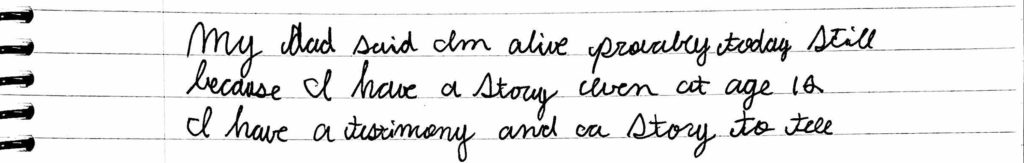 My Dad said Im alive provably today still
because I have a story even at age 18
I have a tesrimony and a story to tell